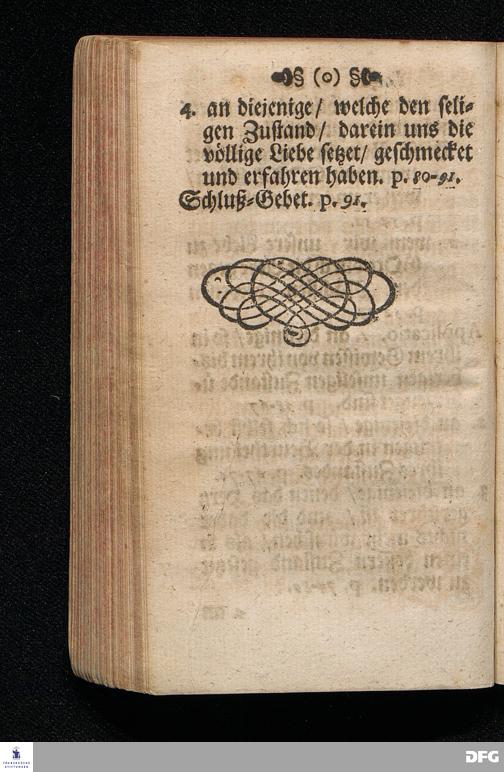 § (o) §
4. an diejenige/ welche den seli-
gen Zustand/ darein uns die
völlige Liebe setzet/ geschmecket
und erfahren haben. p. 80-91.
Schluß-Gebet. p. 91.
FRANCKESCHE
STIFTUNGEN
DFG